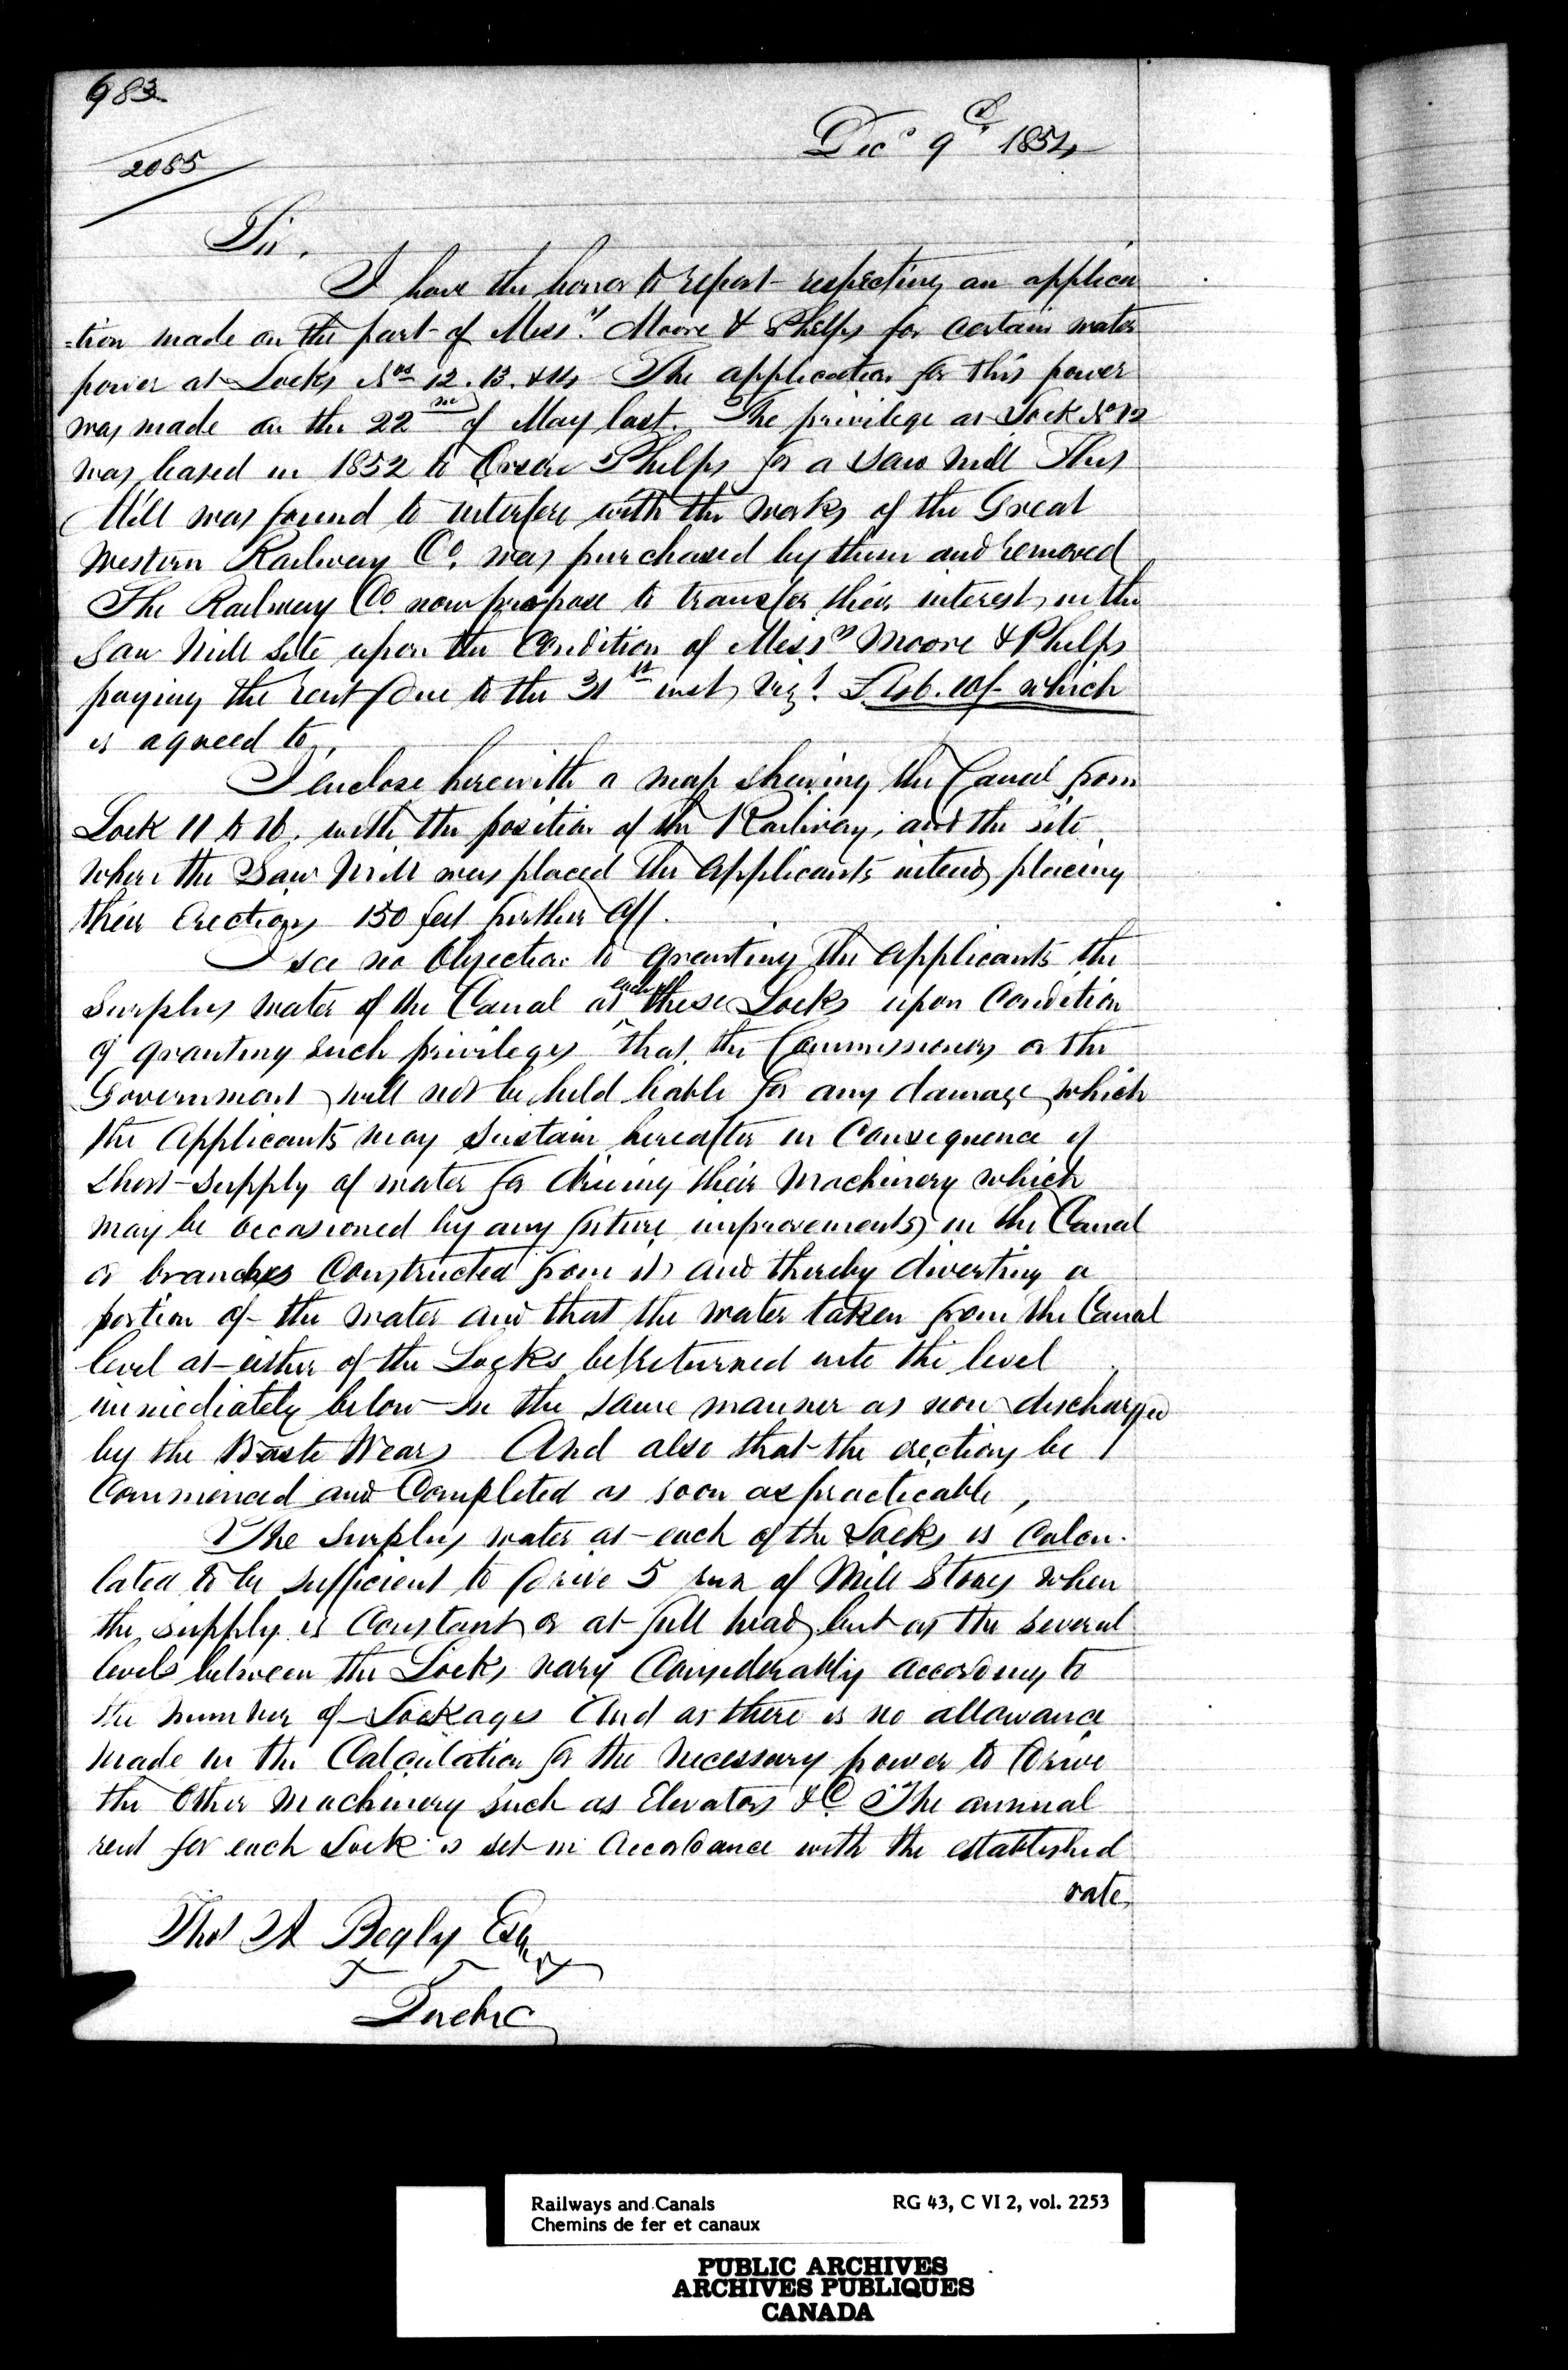 983
2085
Dec 9th 1854
Sir,
I have the honor to report respecting an applica
-tion made on the part of Messrs Moore & Phelps for certain water
power at Locks Nos 12. 13. &14 The application for this power
was made on the 22nd of May last. The privilege at Lock No 12
was leased in 1852 to Orson Phelps for a Saw Mill This
Mill was found to interfere with the works of the Great
Western Railway Co. was purchased by them and removed
The Railway Co now propose to transfer their interest in the
Saw Mill Site upon the Condition of Messrs Moore & Phelps
paying the rent due to the 31st inst vizt which
is agreed to,
I enclose herewith a map shewing the Canal from
Lock 11 to 16, with the position of the Railway, and the site
where the Saw Mill was placed The Applicants intend placing
their Erections 150 feet further off.
I see no Objection to granting the Applicants the
Surplus water of the Canal at each of these Locks upon Condition
of granting such privileges that the Commissioners or the
Government will not be held liable for any damage which
the Applicants may sustain hereafter in Consequence of
short supply of water for driving their Machinery which
may be occasioned by any future improvements in the Canal
or branches Constructed from it and thereby diverting a
portion of the water and that the water taken from the Canal
level at either of the Locks be returned into the level
immediately below in the same manner as now discharged
by the Waste Wears And also that the erections be
Commenced and Completed as soon as practicable,
The Surplus water at each of the Locks is Calcu-
lated to be sufficient to drive 5 run of Mill Stones when
the supply is Constant or at full head but as the several
levels between the Locks vary Considerably according to
the number of Lockages And as there is no allowance
made in the Calculation for the necessary power to drive
the Other Machinery such as Elevators &c The annual
rent for each Lock is set in Accordance with the established
rate,
Thos A Begly Esq
Quebec
Railways and Canals
Chemins de fer et canaux
RG 43, C VI 2, vol. 2253
PUBLIC ARCHIVES
ARCHIVES PUBLIQUES
CANADA